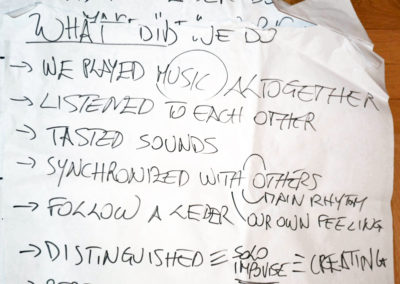 WHAT DID WE DO
→ WE PLAYED MUSIC ALTOGETHER
→ LISTENED TO EACH OTHER
→ TASTED SOUNDS
→ SYNCHRONIZED WITH OTHERS
MAIN RHYTHM
OUR OWN FEELING
→ FOLLOW A LEDER
→ DISTINGUISHED ≡ SOLO ≡ CREATING
IMPVISE